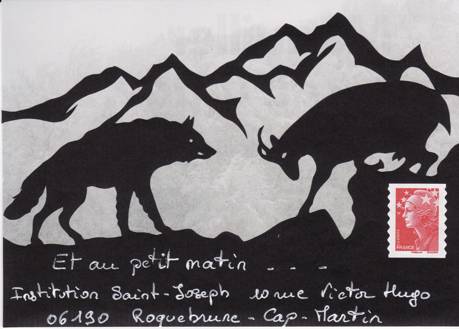 Et au petit matin - - -
Institution Saint-Joseph 10 rue Victor Hugo
06190 Roquebrune-Cap-Martin
FRANCE